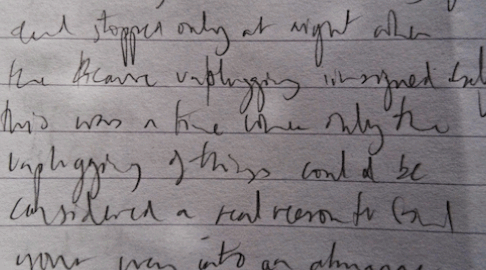 and stopped only at night when
the became unplugging
this was a time when only the
unplugging of things could be
considered a real reason to
your way into an